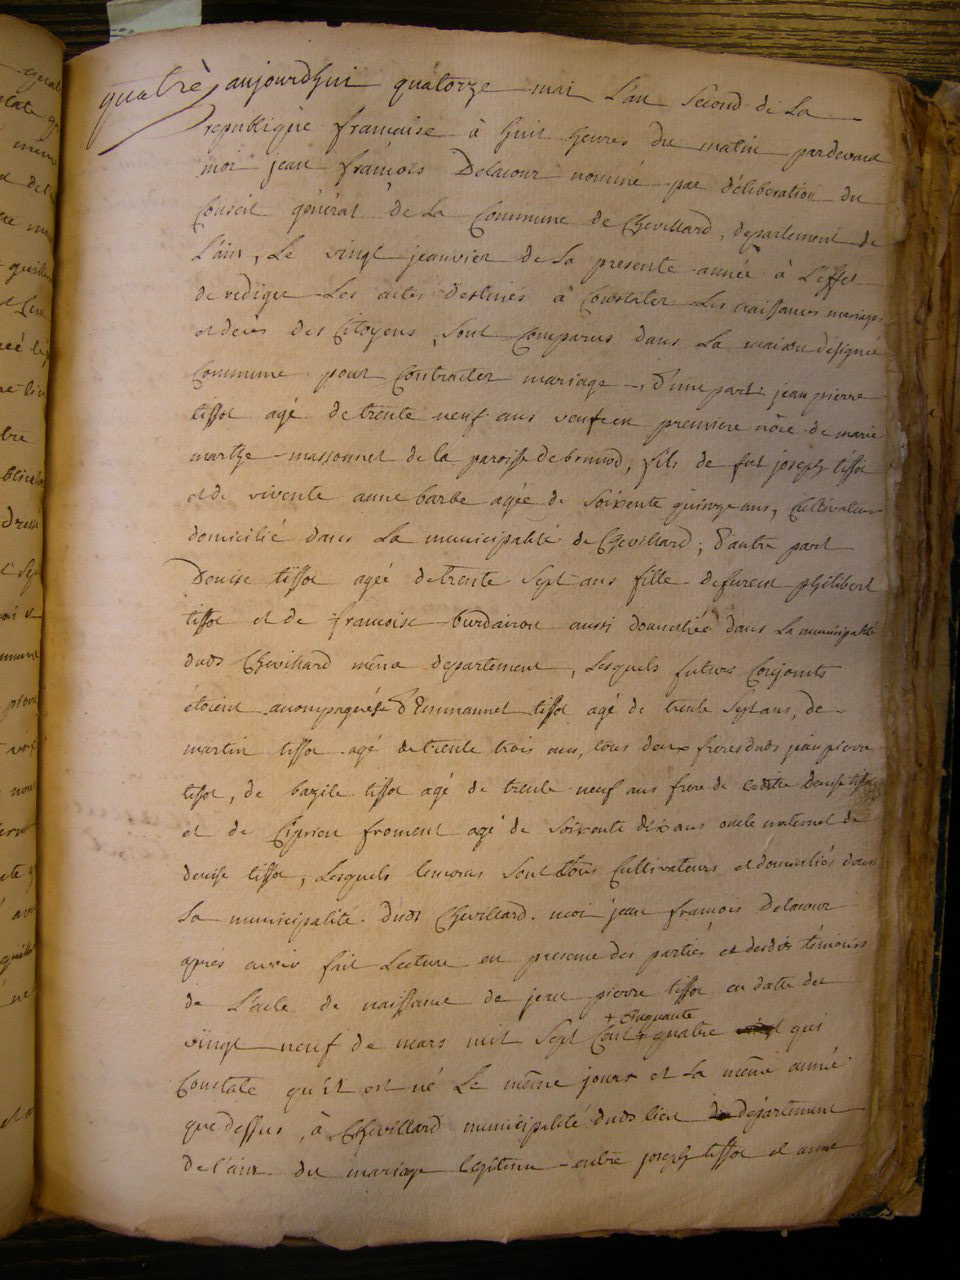 quatrè aujourdhui quatorze mai l'an second de la
republique francaise à huit heures du matin pardevant
moi jean françois Delacour nommé par déliberation du
Conseil général de la Commune de Chevillard, departement de
l'ain, le vingt jeanvier de la presente année à l'effet
de rediger les actes destinés à Constater les naissances mariages
et decès des Citoyens, sont Comparus dans la maison désignée
Commune pour Contracter mariage, d'une part jean pierre
tissot agé de trente neuf ans veuf en premiere nôce de marie
marthe massonnet de la paroisse de brenod, fils de fut joseph tissot
et de vivente anne barbe agée de soixente quinze ans, Cultivateur
domicilié dans la municipalité de Chevillard; d'autre part
Denise tissot agée de trente sept ans fille defureut philibert
tissot et de francoise burdairon aussi domiciliée dans la municipalité
dudt Chevillard même departement, lesquels futurs Conjoints
étoient accompagnés d'Emmannuel tissot agé de trente sept ans, de
martin tissot agé de trente trois ans, tous deux freres dudt jean pierre
tissot, de bazile tissot agé de trente neuf ans frere de ladite denise tissot
et de Ciprien froment agé de soixente dix ans oncle maternel de
denise tissot, lesquels temoins sont tous Cultivateurs et domiciliés dans
la municipalité dudt Chevillard. moi jean francois Delacour
après avoir fait lecture en presence des parties et desdits témoins
de l'acte de naissance de jean pierre tissot en datte du
+ cinquante
vingt neuf de mars mil sept Cent + quatre qui
Constate qu'il est né le même jours et la même année
que dessus, à Chevillard municipalité dudt lieu departement
de l'ain du mariage legitime entre joseph tissot et anne